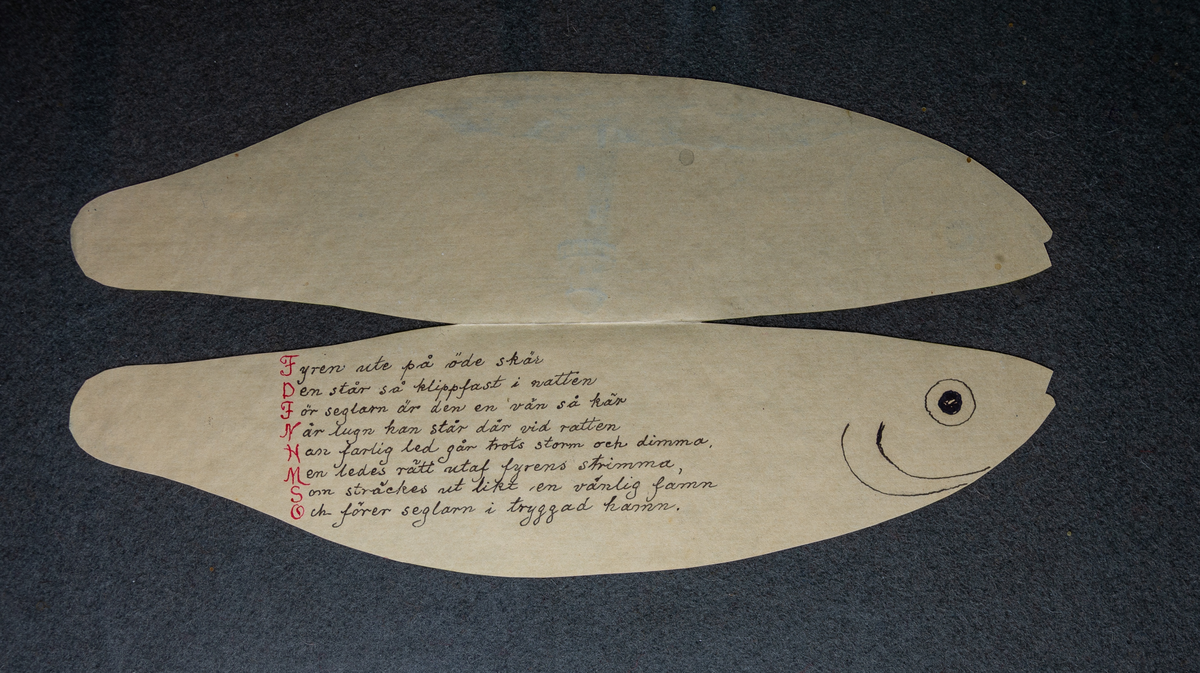 Fyren ute på öde skär
Den står så klippfast i natten
För seglarn är den en vän så kär
När lugn han står där vid ratten
Han farlig led går trots storm och dimma,
Men ledes rätt utaf fyrens strimma,
Som sträckes ut likt en vänlig famn
Och förer seglarn i tryggad hamn.